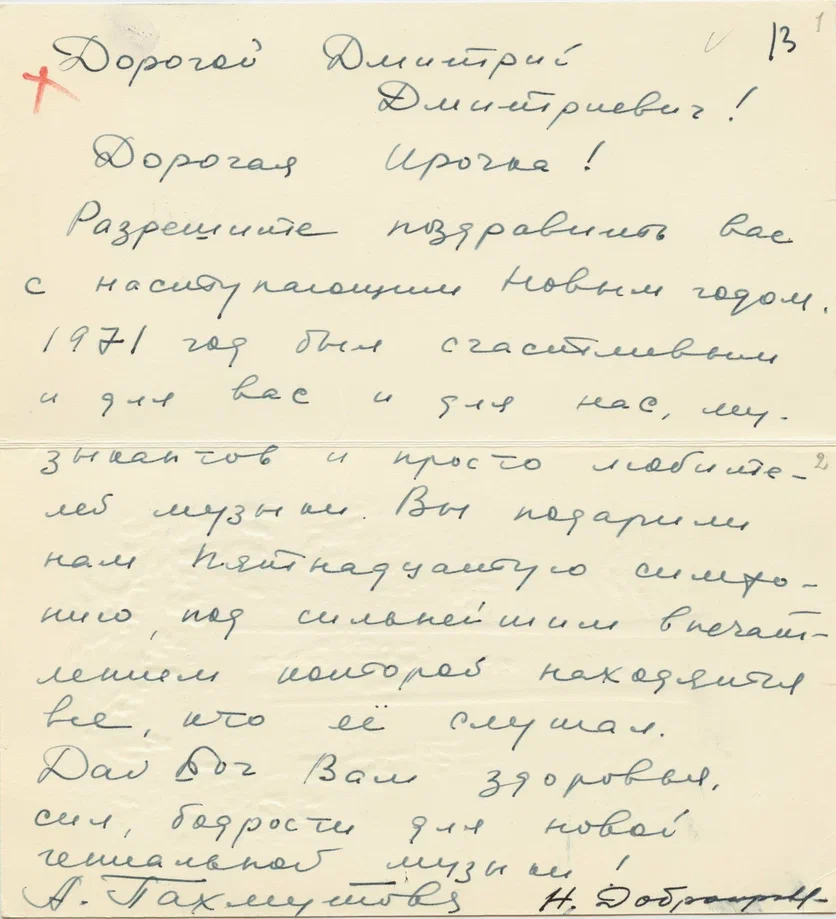 1
13
Дорогой Дмитрий
Дмитриевич!
Дорогая Ирочка!
Разрешите поздравить вас
с наступающим Новым годом.
1971 год был счастливым
и для вас и для нас, му-
зыкантов и просто любите-
2
лей музыки. Вы подарили
нам Пятнадцатую симфо-
нию, под сильнейшим впечат-
лением которой находятся
все, кто её слушал.
Дай Бог Вам здоровья,
сил, бодрости для новой
гениальной музыки!
А. Пахмутова Н. Добронрав